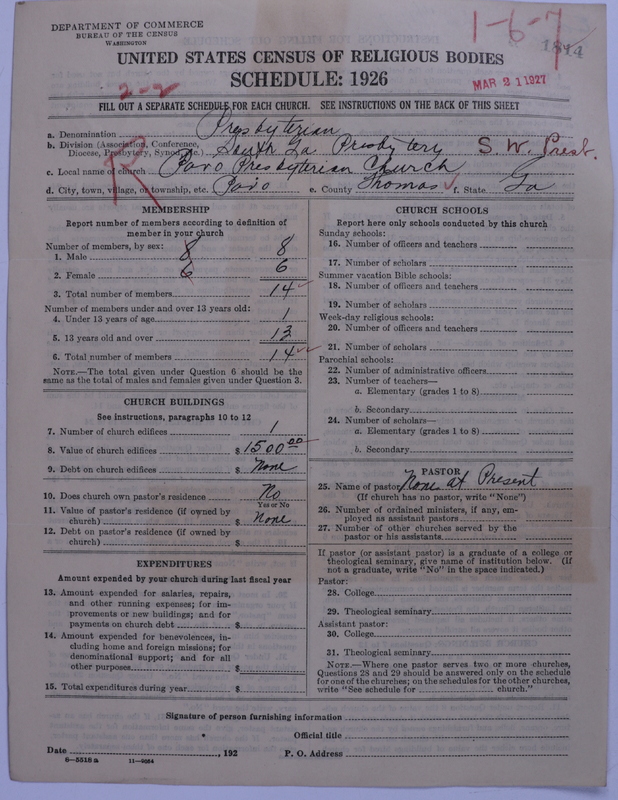 DEPARTMENT OF COMMERCE
BUREAU OF THE CENSUS
WASHINGTON
1-6-7
1814
UNITED STATES CENSUS OF RELIGIOUS BODIES
SCHEDULE: 1926
2-2
MAR 21 1927
FILL OUT A SEPARATE SCHEDULE FOR EACH CHURCH. SEE INSTRUCTIONS ON THE BACK OF THIS SHEET
a. Denomination Presbyterian
b. Division (Association, Conference,
Diocese, Presbytery, Synod, etc.) South Ga Presbytery S. W. Presb.
c. Local name of church Pavo Presbyterian Church
d. City, town, village, or township, etc. Pavo e. County Thomas f. State Ga
R
MEMBERSHIP
Report number of members according to definition of
member in your church
Number of members, by sex:
1. Male 8 8
2. Female 6 6
3. Total number of members 14
Number of members under and over 13 years old:
4. Under 13 years of age 1
5. 13 years old and over 13
6. Total number of members 14
NOTE.—The total given under Question 6 should be the
same as the total of males and females given under Question 3.
CHURCH BUILDINGS
See instructions, paragraphs 10 to 12
7. Number of church edifices 1
8. Value of church edifices $ 1500 00
9. Debt on church edifices $ None
10. Does church own pastor's residence No
Yes or No
11. Value of pastor's residence (if owned by
church) $ None
12. Debt on pastor's residence (if owned by
church) $
EXPENDITURES
Amount expended by your church during last fiscal year
13. Amount expended for salaries, repairs,
and other running expenses; for im-
provements or new buildings; and for
payments on church debt $
14. Amount expended for benevolences, in-
cluding home and foreign missions; for
denominational support; and for all
other purposes $
15. Total expenditures during year $
CHURCH SCHOOLS
Report here only schools conducted by this church
Sunday schools:
16. Number of officers and teachers
17. Number of scholars
Summer vacation Bible schools:
18. Number of officers and teachers
19. Number of scholars
Week-day religious schools:
20. Number of officers and teachers
21. Number of scholars
Parochial schools:
22. Number of administrative officers
23. Number of teachers—
a. Elementary (grades 1 to 8)
b. Secondary
24. Number of scholars—
a. Elementary (grades 1 to 8)
b. Secondary
PASTOR
25. Name of pastor None at Present
(If church has no pastor, write "None")
26. Number of ordained ministers, if any, em-
ployed as assistant pastors
27. Number of other churches served by the
pastor or his assistants
If pastor (or assistant pastor) is a graduate of a college or
theological seminary, give name of institution below. (If
not a graduate, write "No" in the space indicated.)
Pastor:
28. College
29. Theological seminary
Assistant pastor:
30. College
31. Theological seminary
NOTE.—Where one pastor serves two or more churches,
Questions 28 and 29 should be answered only on the schedule
for one of the churches; on the schedules for the other churches,
write "See schedule for church."
Signature of person furnishing information
Official title
Date , 192 P. O. Address
6-5518 a 11-5064